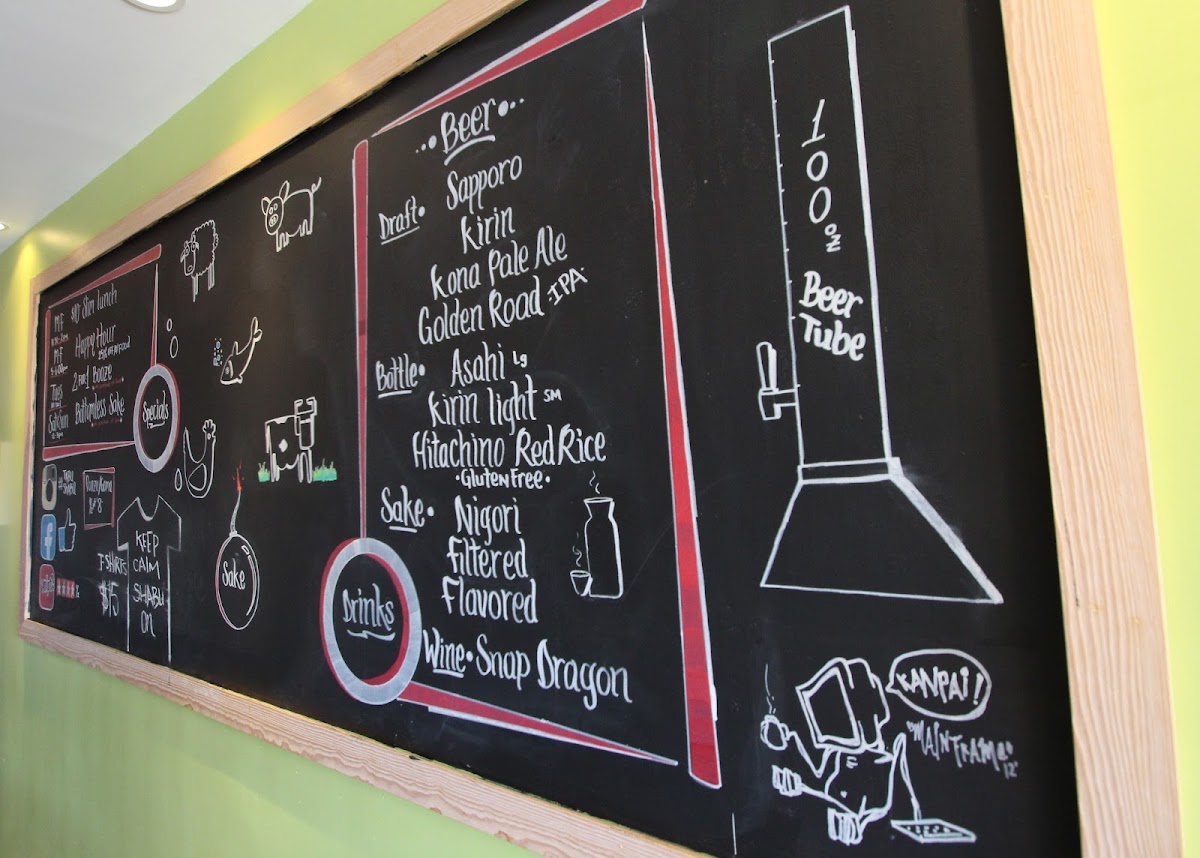 M-F $10 Slim lunch
M-F Happy Hour
Tues 2 for 1 Booze
Sat & Sun Bottomless Sake
Specials
T-SHIRTS
$15
KEEP
CALM
SHABU
ON
Sake
Beer
Draft• Sapporo
Kirin
Kona Pale Ale
Golden Road -IPA-
Bottle• Asahi Lg
Kirin light SM
Hitachino Red Rice
•Gluten Free•
Sake• Nigori
Filtered
Flavored
Drinks
Wine• Snap Dragon
100 oz
Beer
Tube
KANPAI!
"MAINFRAME"
12'